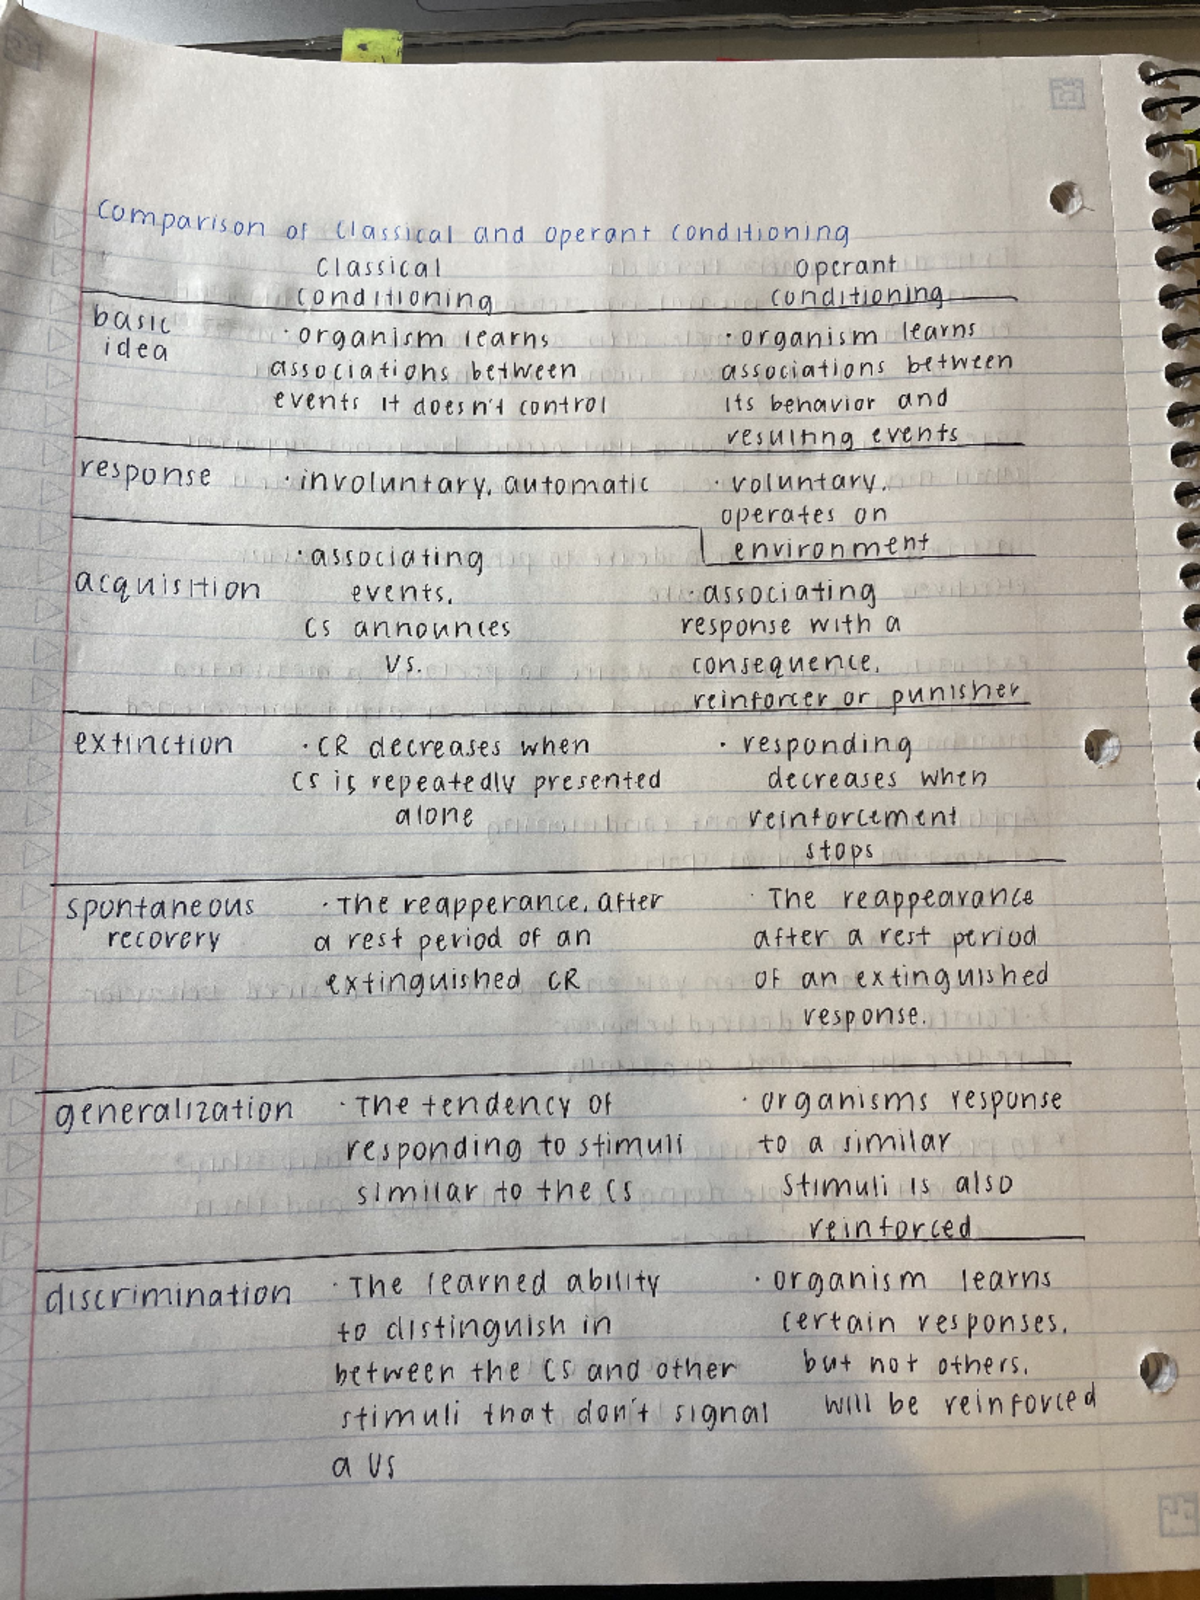 comparison of classical and operant conditioning
classical operant
conditioning conditioning
basic
idea
· organism learns
associations between
events it doesn't control
· organism learns
associations between
its behavior and
resulting events
response
· involuntary, automatic
· voluntary,
operates on
environment
acquisition
· associating
events,
CS announces
US.
· associating
response with a
consequence,
reinforcer or punisher
extinction
· CR decreases when
CS is repeatedly presented
alone
· responding
decreases when
reinforcement
stops
spontaneous
recovery
· The reapperance, after
a rest period of an
extinguished CR
· The reappearance
after a rest period
of an extinguished
response.
generalization
· The tendency of
responding to stimuli
similar to the CS
· organisms response
to a similar
stimuli is also
reinforced
discrimination
· The learned ability
to distinguish in
between the CS and other
stimuli that don't signal
a US
· organism learns
certain responses,
but not others,
will be reinforced